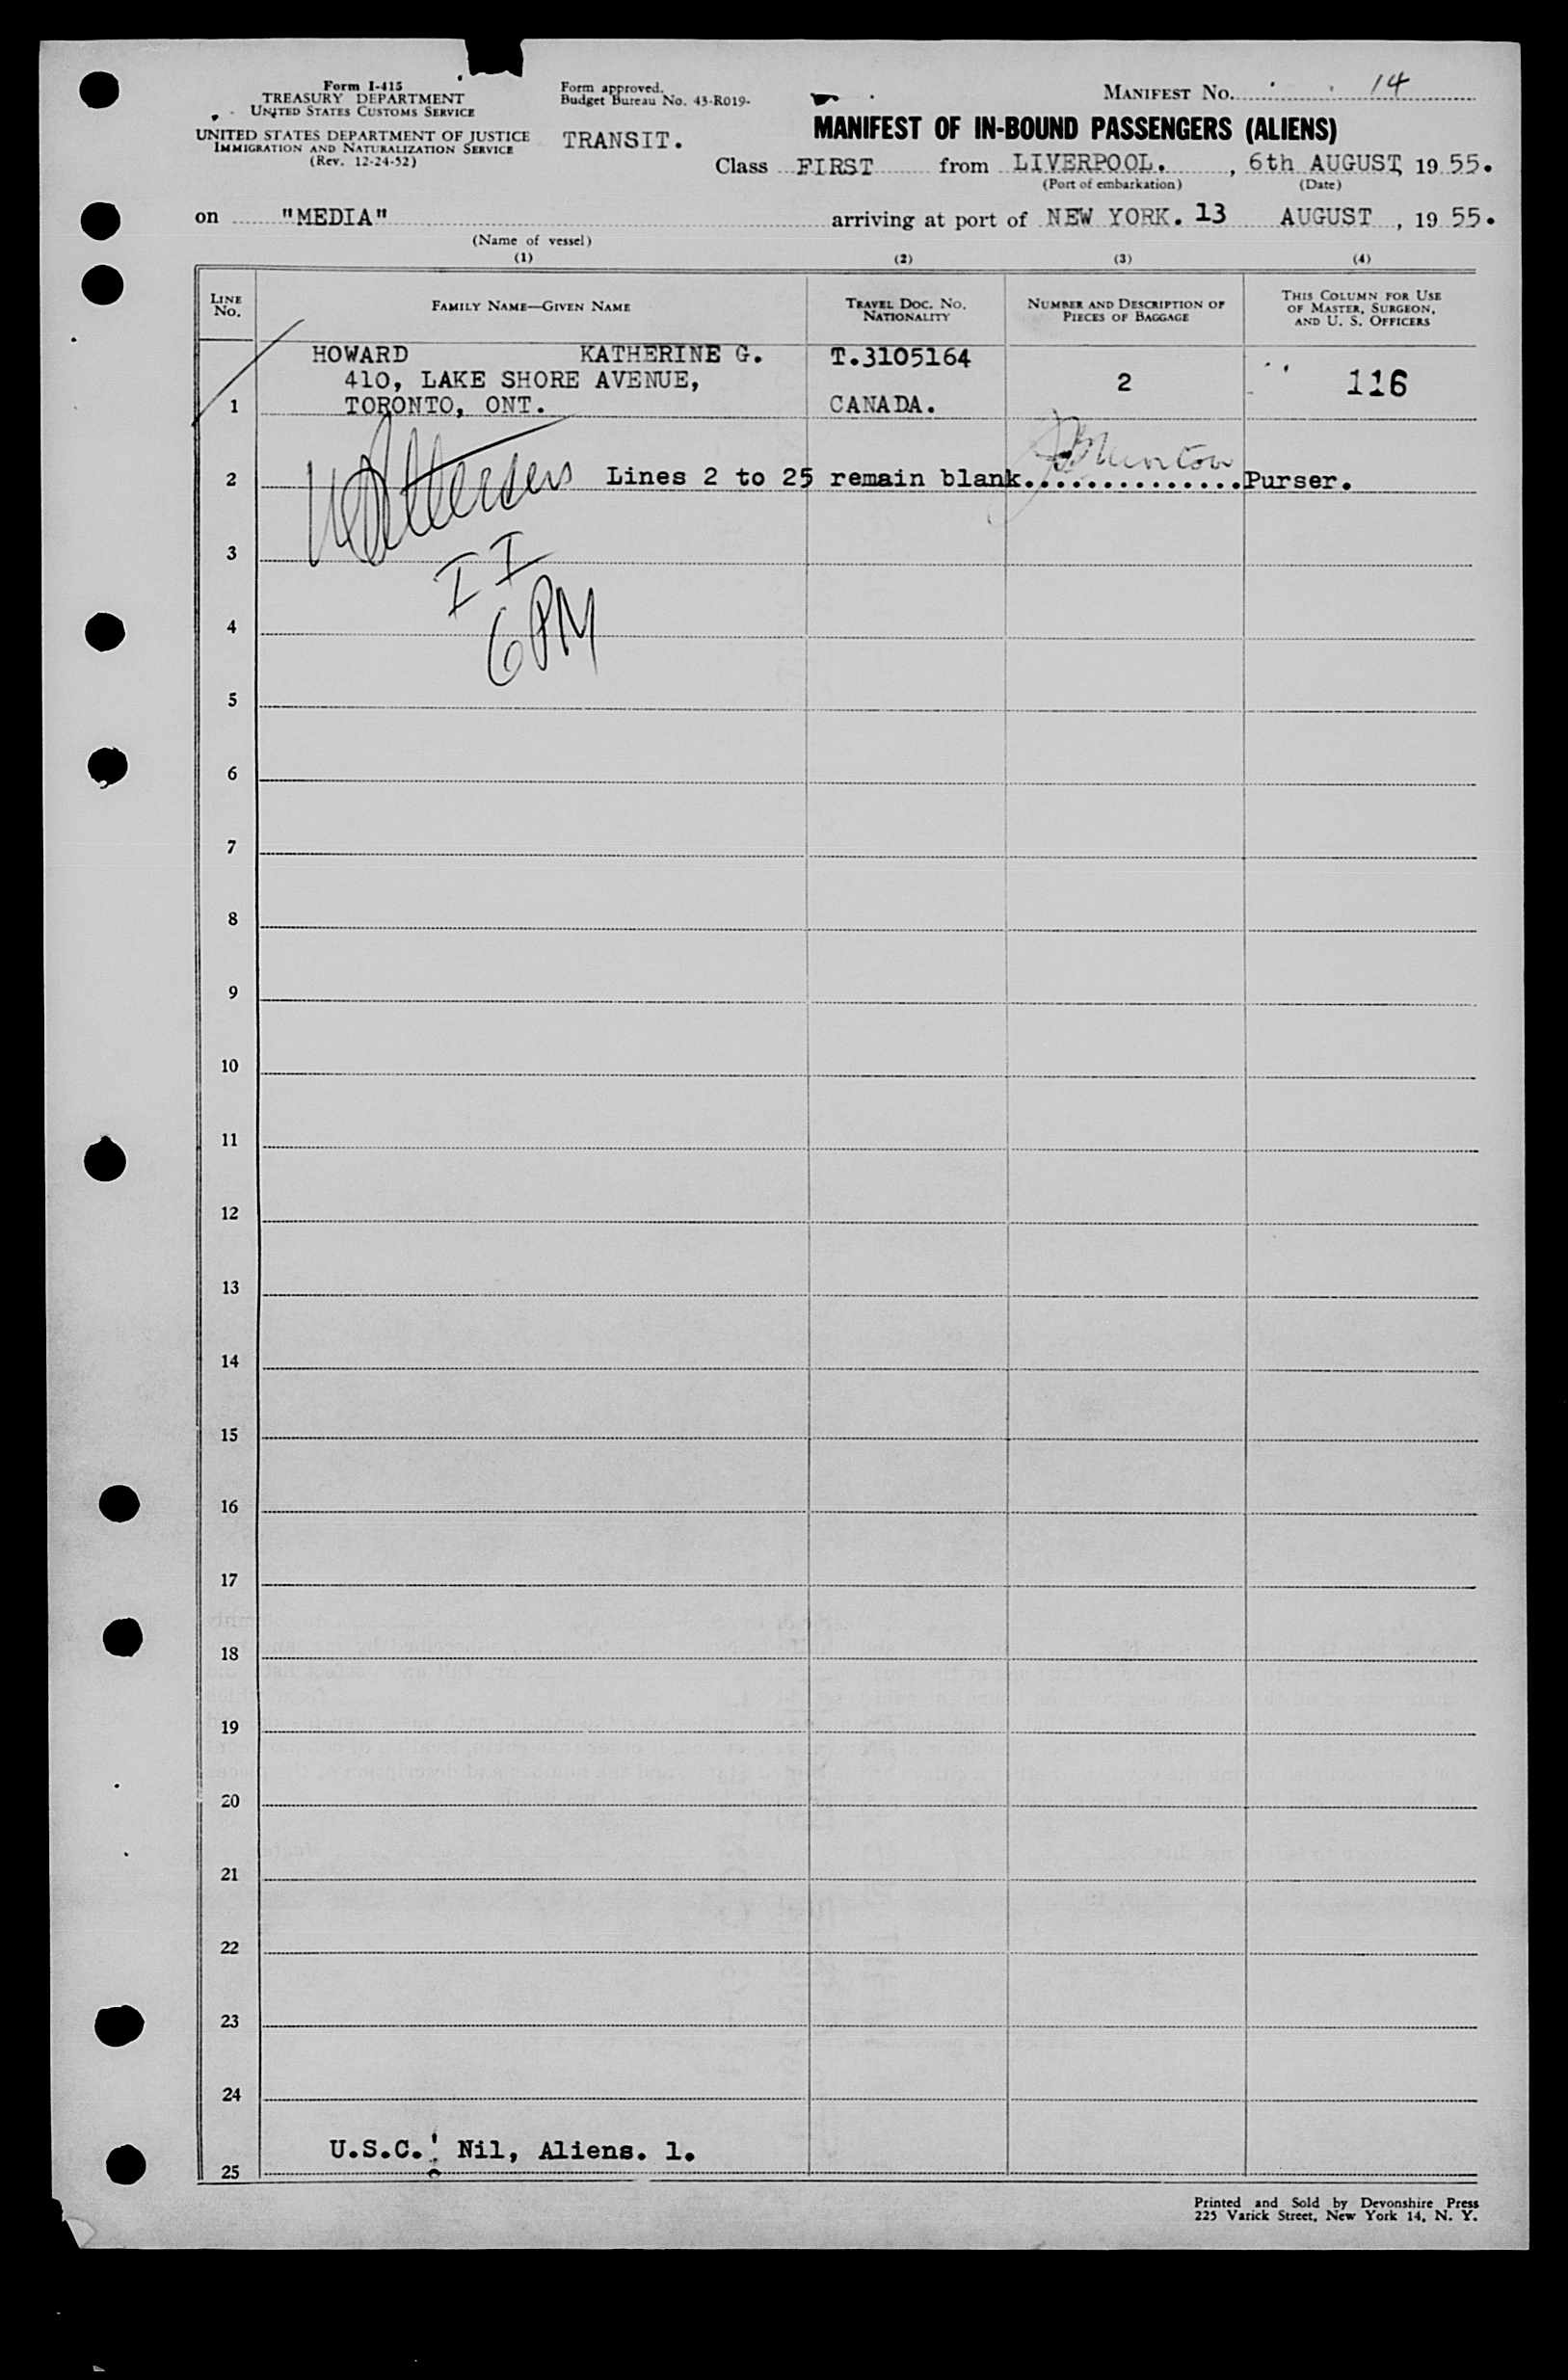 Form I-415
TREASURY DEPARTMENT
UNITED STATES CUSTOMS SERVICE
UNITED STATES DEPARTMENT OF JUSTICE
IMMIGRATION AND NATURALIZATION SERVICE
(Rev. 12-24-52)
Form approved.
Budget Bureau No. 43-R019-
TRANSIT.
MANIFEST NO. 14
MANIFEST OF IN-BOUND PASSENGERS (ALIENS)
Class FIRST from LIVERPOOL. , 6th AUGUST, 19 55.
(Port of embarkation) (Date)
on "MEDIA" arriving at port of NEW YORK. 13 AUGUST , 19 55.
(Name of vessel)
(1) (2) (3) (4)
LINE NO.
FAMILY NAME—GIVEN NAME
TRAVEL DOC. NO.
NATIONALITY
NUMBER AND DESCRIPTION OF
PIECES OF BAGGAGE
THIS COLUMN FOR USE
OF MASTER, SURGEON,
AND U. S. OFFICERS
HOWARD KATHERINE G. T.3105164
410, LAKE SHORE AVENUE, 2 116
1 TORONTO, ONT. CANADA.
2 Lines 2 to 25 remain blank...............Purser.
3 I I
4 6 PM
5
6
7
8
9
10
11
12
13
14
15
16
17
18
19
20
21
22
23
24
U.S.C. Nil, Aliens. 1.
25
Printed and Sold by Devonshire Press
225 Varick Street, New York 14, N. Y.